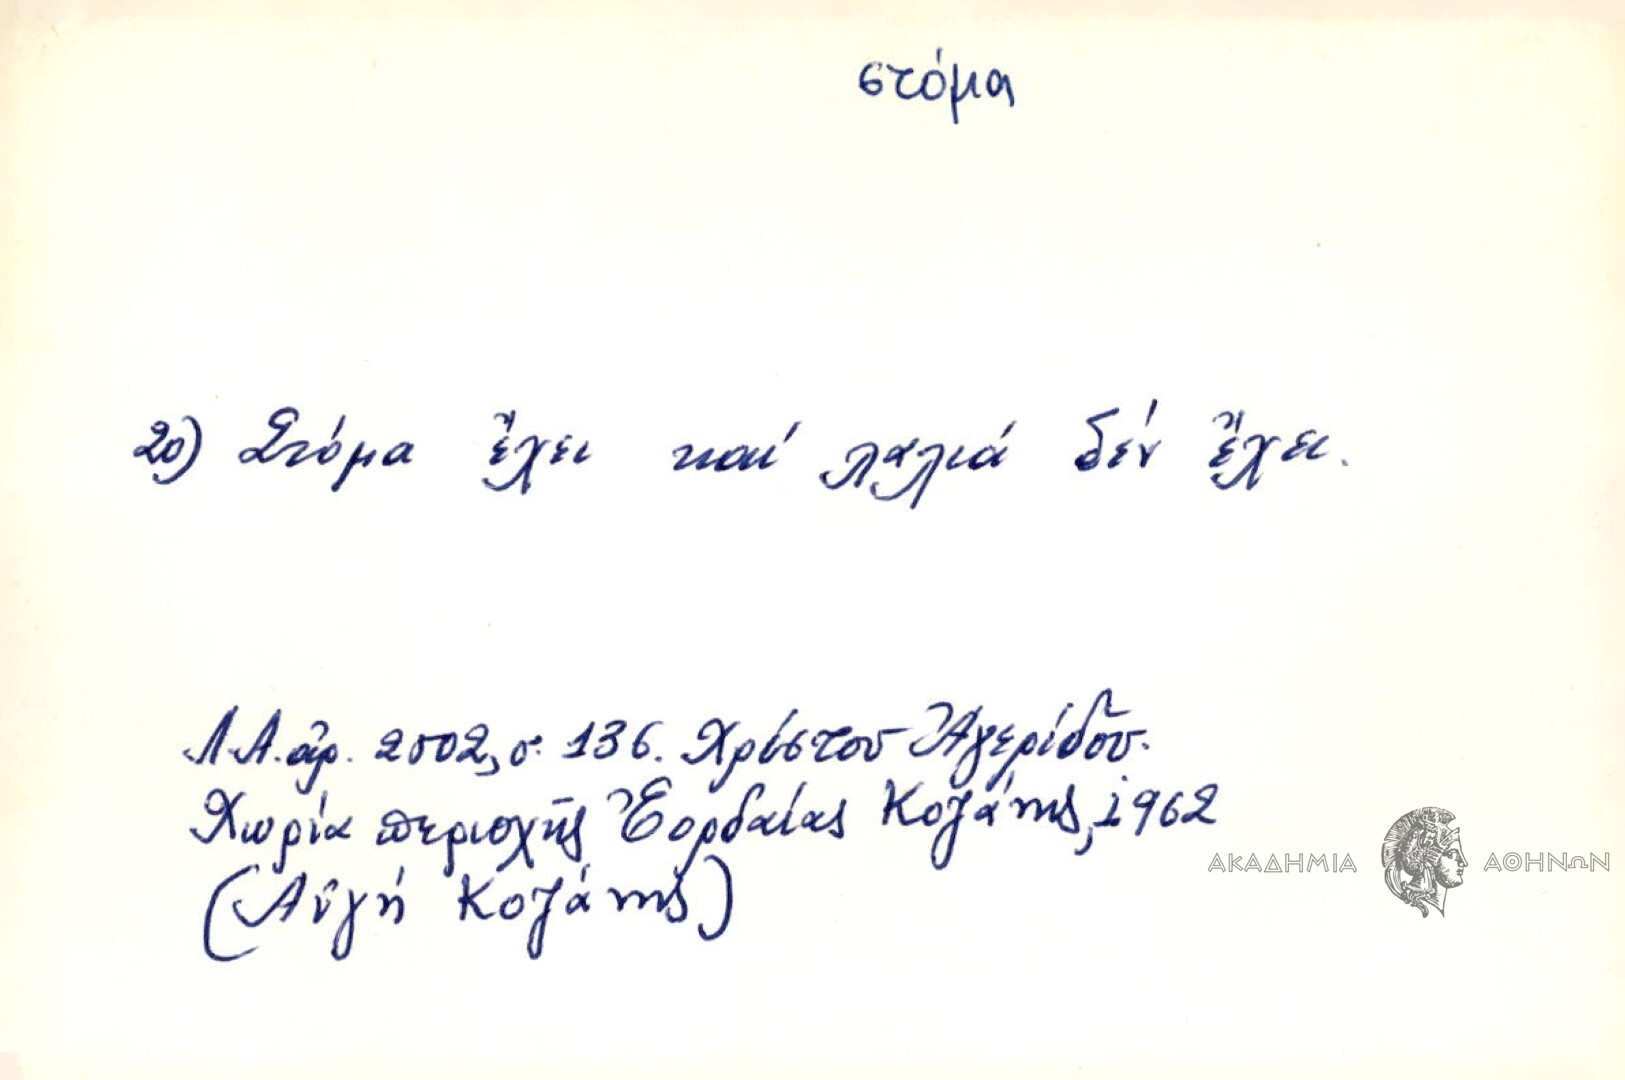 στόμα
20) Στόμα ἔχει καί λαλιά δέν ἔχει.
Λ.Α. ἀρ. 2502, σ. 136. Χρίστου Ἀγερίδου.
Χωρία περιοχῆς Ἐορδαίας Κοζάνης, 1962
(Αὐγή Κοζάνης)
ΑΚΑΔΗΜΙΑ ΑΘΗΝΩΝ